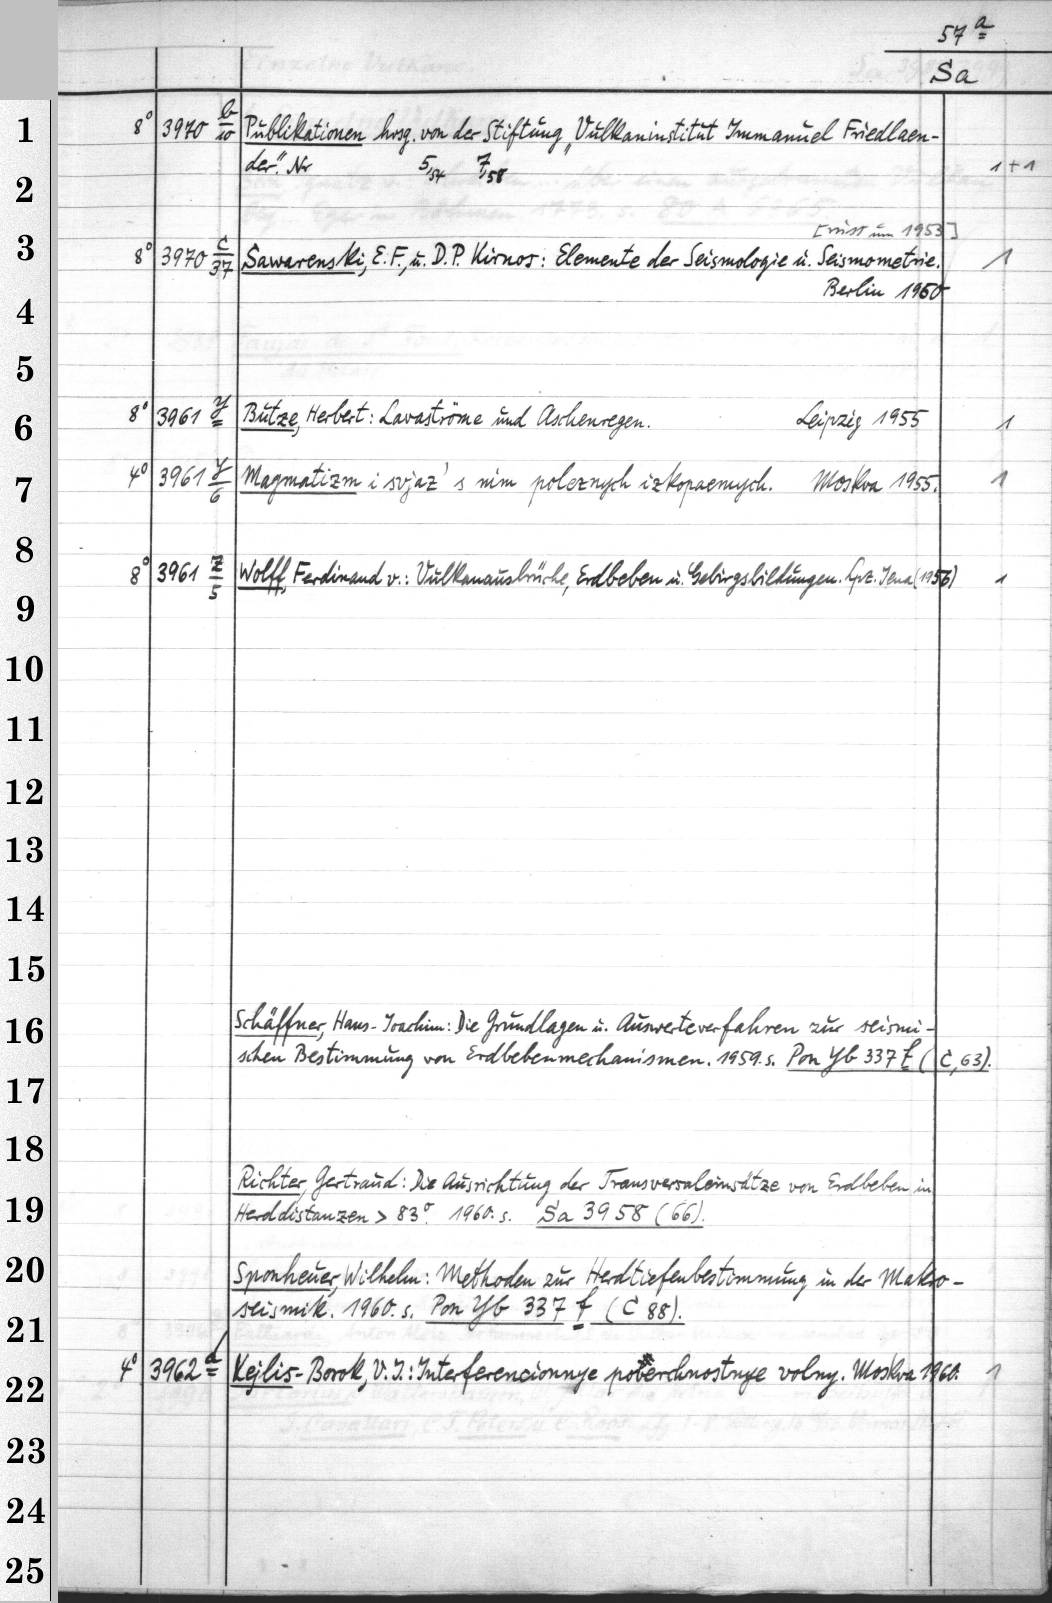 57 a
Sa
1 8° 3970 b/10 Publikationen hrsg. von der Stiftung „Vulkaninstitut Immanuel Friedlaen-
2 der". Nr 5/54 7/58 1+1
[russ um 1953]
3 8° 3970 c/37 Sawarenski, E.F., u. D.P. Kirnos: Elemente der Seismologie u. Seismometrie. 1
4 Berlin 1960
5
6 8° 3961 y Butze, Herbert: Lavaströme und Aschenregen. Leipzig 1955 1
7 4° 3961 y/6 Magmatizm i svjaz' s nim poleznych izkopaemych. Moskva 1955. 1
8
8° 3961 z/5 Wolff, Ferdinand v.: Vulkanausbrüche, Erdbeben u. Gebirgsbildungen. Lpz. Jena (1956) 1
9
10
11
12
13
14
15
16 Schäffner, Hans-Joachim: Die Grundlagen u. Auswerteverfahren zur seismi-
schen Bestimmung von Erdbebenmechanismen. 1959. s. Pon Yb 337 f (C, 63).
17
18
Richter, Gertraud: Die Ausrichtung der Transversaleinsätze von Erdbeben in
19 Herddistanzen > 83°. 1960. s. Sa 3958 (66).
20 Sponheuer, Wilhelm: Methoden zur Herdtiefenbestimmung in der Makro-
21 seismik. 1960. s. Pon Yb 337 f (C 88).
22 4° 3962 a Kejlis-Borok, V.I.: Interferencionnye poverchnostnye volny. Moskva 1960. 1
23
24
25